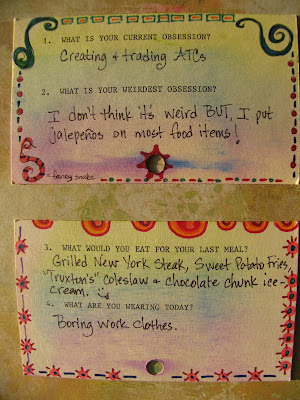 1. WHAT IS YOUR CURRENT OBSESSION?
Creating & trading ATCs
2. WHAT IS YOUR WEIRDEST OBSESSION?
I don't think it's weird BUT, I put
jalepeños on most food items!
fancy snake
3. WHAT WOULD YOU EAT FOR YOUR LAST MEAL?
Grilled New York Steak, Sweet Potato Fries,
"Truxton's" coleslaw & chocolate chunk ice-
cream.
4. WHAT ARE YOU WEARING TODAY?
Boring work clothes.